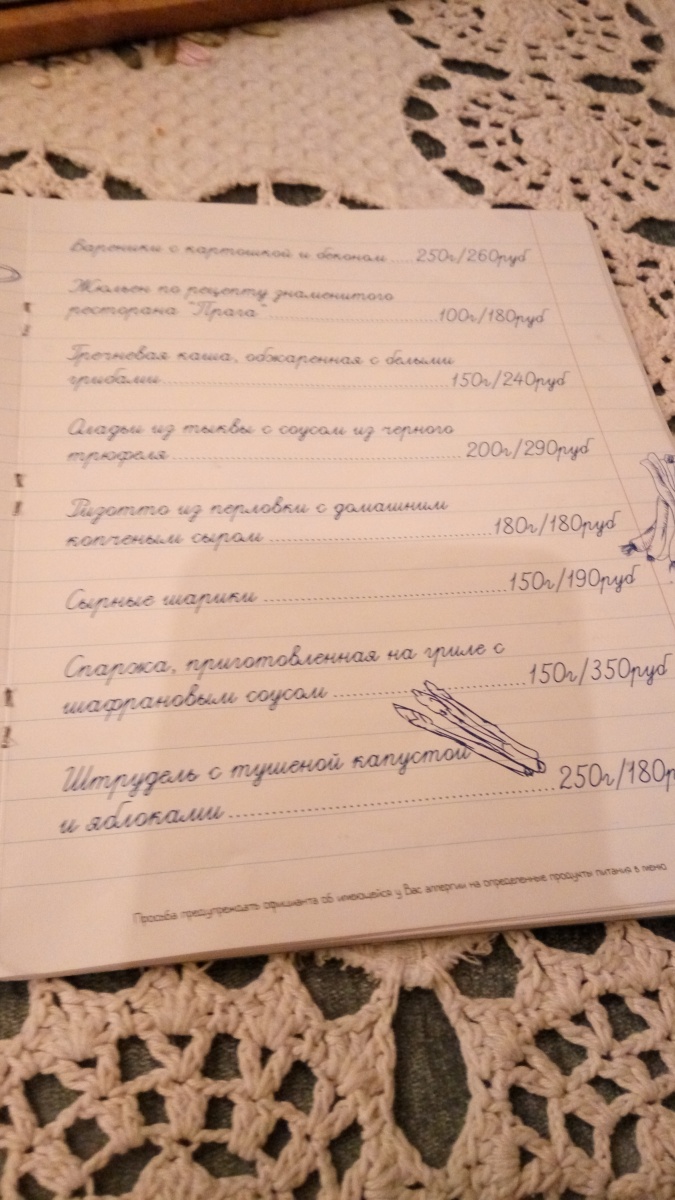 Вареники с картошкой и беконом ..... 250г/260руб
Жюльен по рецепту знаменитого
ресторана "Прага" ..... 100г/180руб
Гречневая каша, обжаренная с белыми
грибами ..... 150г/240руб
Оладьи из тыквы с соусом из черного
трюфеля ..... 200г/290руб
Ризотто из перловки с домашним
копченым сыром ..... 180г/180руб
Сырные шарики ..... 150г/190руб
Спаржа, приготовленная на гриле с
шафрановым соусом ..... 150г/350руб
Штрудель с тушеной капустой
и яблоками ..... 250г/180р
Просьба предупреждать официанта об имеющейся у Вас аллергии на определенные продукты питания в меню